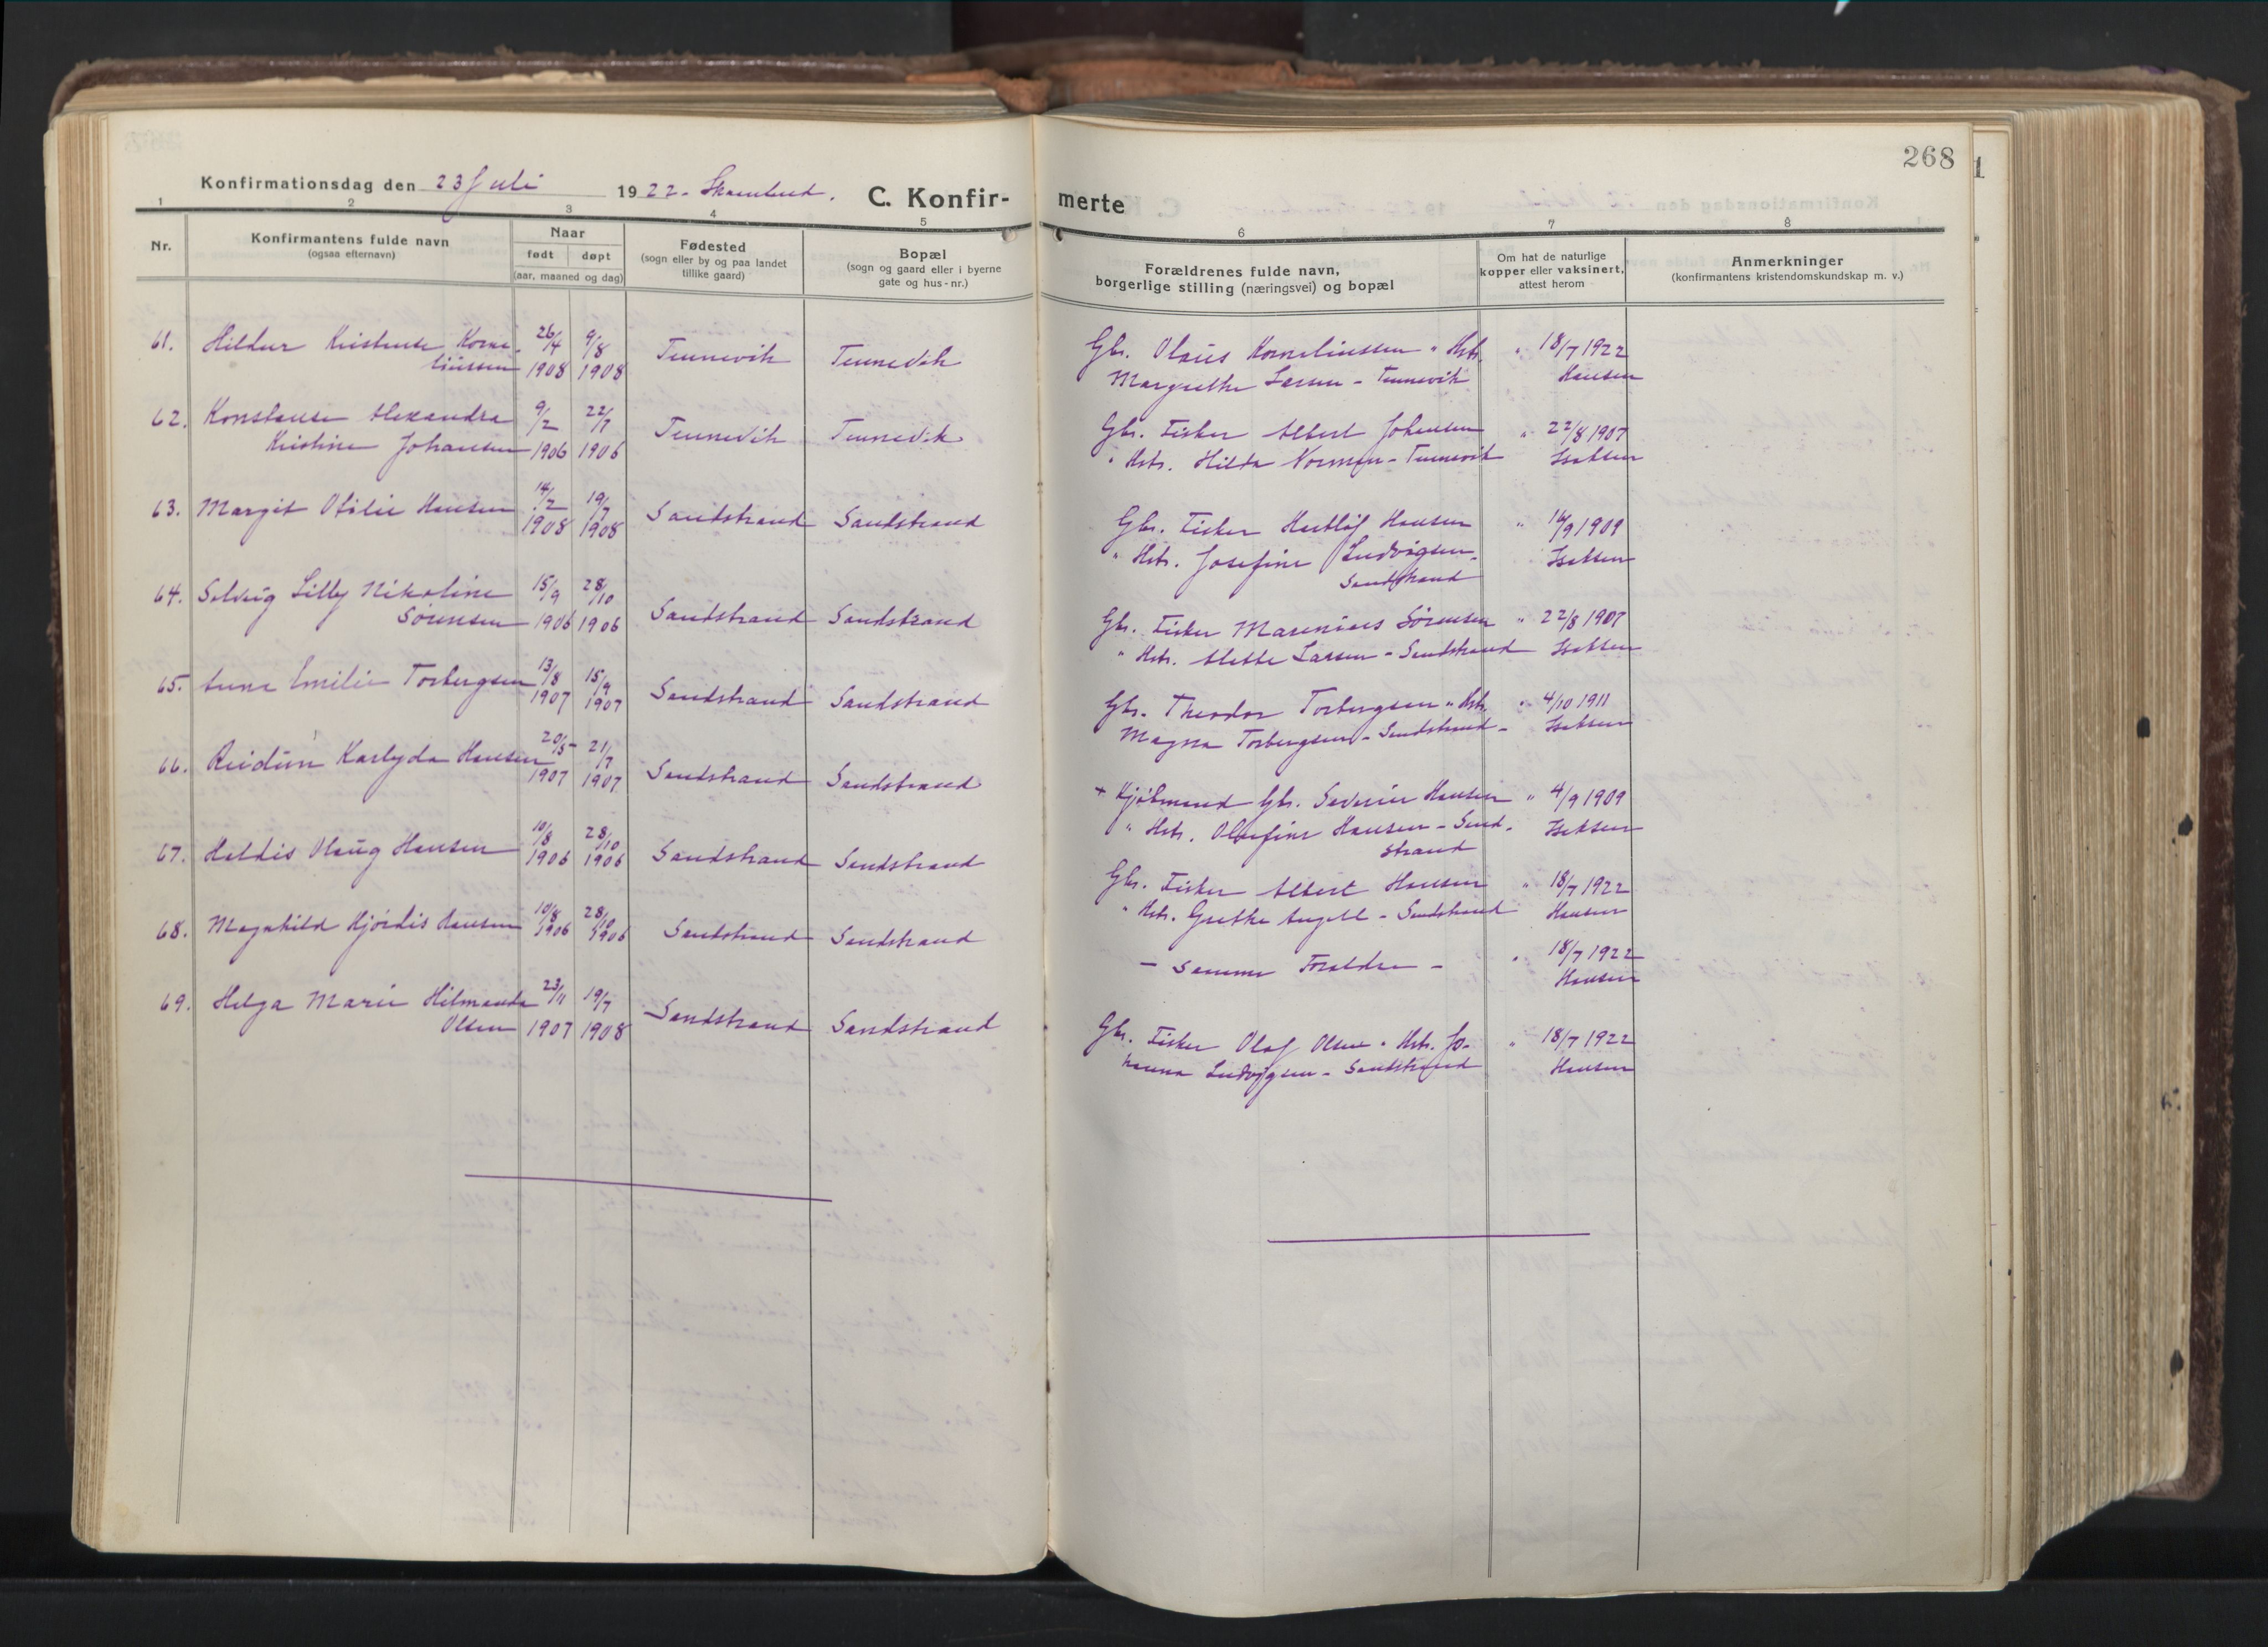 268
Konfirmationsdag den 23 Juli 1922 - Skaanland.
C. Konfirmerte
1 2 3 4 5 6 7 8
Nr.
Konfirmantens fulde navn
(ogsaa efternavn)
Naar
født døpt
(aar, maaned og dag)
Fødested
(sogn eller by og paa landet
tillike gaard)
Bopæl
(sogn og gaard eller i byerne
gate og hus-nr.)
Forældrenes fulde navn,
borgerlige stilling (næringsvei) og bopæl
Om hat de naturlige
kopper eller vaksinert,
attest herom
Anmerkninger
(konfirmantens kristendomskundskap m. v.)
61. Hildur Kristense Korne- 26/4 9/8 Tennevik Tennevik Gbr. Olaus Korneliussen " Hstr. " 18/7 1922
liussen 1908 1908 Margrethe Larsen - Tennevik Hansen
62. Konstanse Alexandra 9/2 22/7 Tennevik Tennevik Gbr. Fisker Albert Johansen " 22/8 1907
Kristine Johansen 1906 1906 " Hstr. Hilda Norman - Tennevik Isaksen
63. Margit Otilie Hansen 14/2 19/7 Sandstrand Sandstrand Gbr. Fisker Hartløf Hansen " 14/9 1909
1908 1908 " Hstr. Josefine Ludvigsen - Isaksen
Sandstrand
64. Solveig Lilly Nikoline 15/9 28/10 Sandstrand Sandstrand Gbr. Fisker Marenius Sørensen " 22/8 1907
Sørensen 1906 1906 " Hstr. Alette Larsen - Sandstrand Isaksen
65. Anna Emilie Torbergsen 13/8 15/9 Sandstrand Sandstrand Gbr. Theodor Torbergsen " Hstr. " 4/10 1911
1907 1907 Magna Torbergsen - Sandstrand - Isaksen
66. Reidun Karlyda Hansen 20/5 - 21/7 Sandstrand Sandstrand + Kjøbmand Gbr. Severin Hansen " 4/9 1909
1907 1907 " Hstr. Olufine Hansen - Sand- Isaksen
strand
67. Haldis Olaug Hansen 10/8 28/10 Sandstrand Sandstrand Gbr. Fisker Albert Hansen " 18/7 1922
1906 1906 " Hstr. Grethe Angell - Sandstrand Hansen
68. Magnhild Hjørdis Hansen 10/8 28/10 Sandstrand Sandstrand - Samme Foraldre - " 18/7 1922
1906 1906 Hansen
69. Helga Marie Hilmanda 23/11 19/7 Sandstrand Sandstrand Gbr. Fisker Olaf Olsen " Hstr. Jo- " 18/7 1922
Olsen 1907 1908 hanna Ludvigsen - Sandstrand Hansen